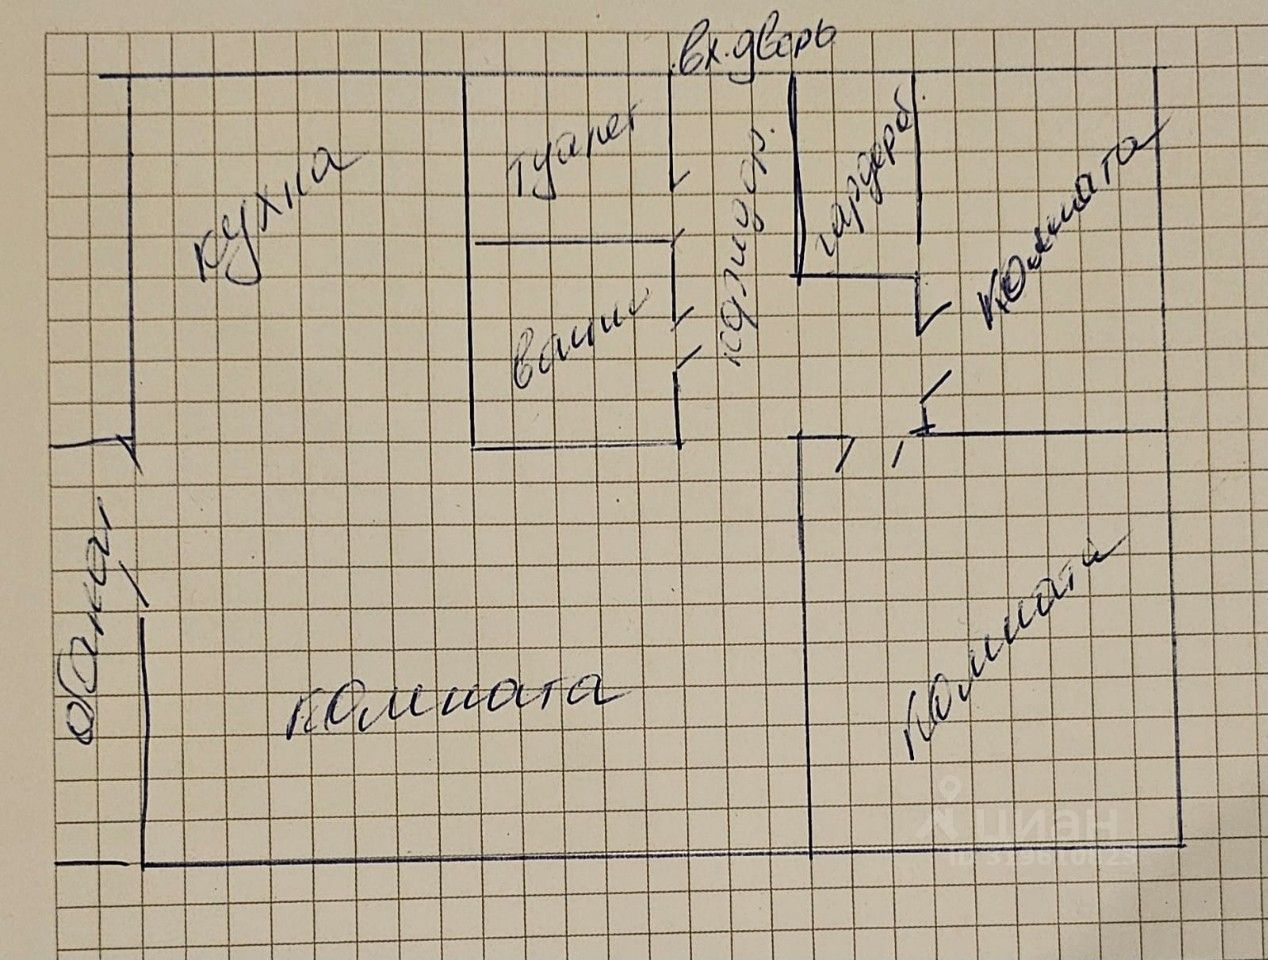 вх.дверь
туалет
гардероб
кухня
коридор.
Комната
ванна
балкон
комната
комната
циан